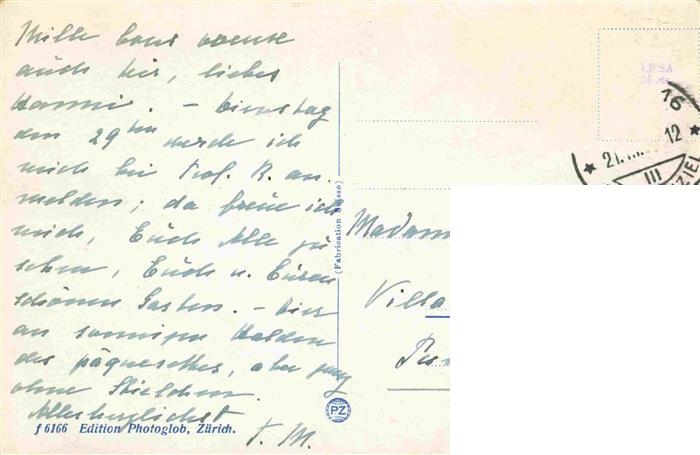 Mille bons voeux
auch hir, liebes
Hanni. – Dienstag
den 29ten werde ich
mich bei Prof. R. an-
melden; da freue ich
mich, Euch Alle zu
sehen, Euch u. Euren
schönen Garten. – Hier
an sonnigen Halden
des pâquerettes, aber ganz
ohne Stielchen.
Allerherzlichst
T. M.
f 6166 Edition Photoglob, Zürich.
(Fabrication Suisse)
PZ
LESA
16
12
21. III.
III
ZIEL
Madam
Villa